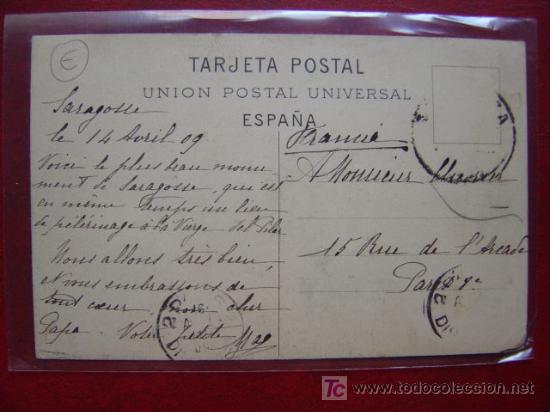 E
TARJETA POSTAL
UNION POSTAL UNIVERSAL
ESPAÑA
Saragosse
le 14 Avril 09
Voici le plus beau monu-
ment de Saragosse, qui est
en même temps un lieu
de pélérinage à la Vierge del Pilar
Nous allons très bien,
et vous embrassons de
tout cœur mon cher
Papa. Votre petite
Francia
A Monsieur
15 Rue de l'Arcade
Paris 9e
todocoleccion
www.todocoleccion.net